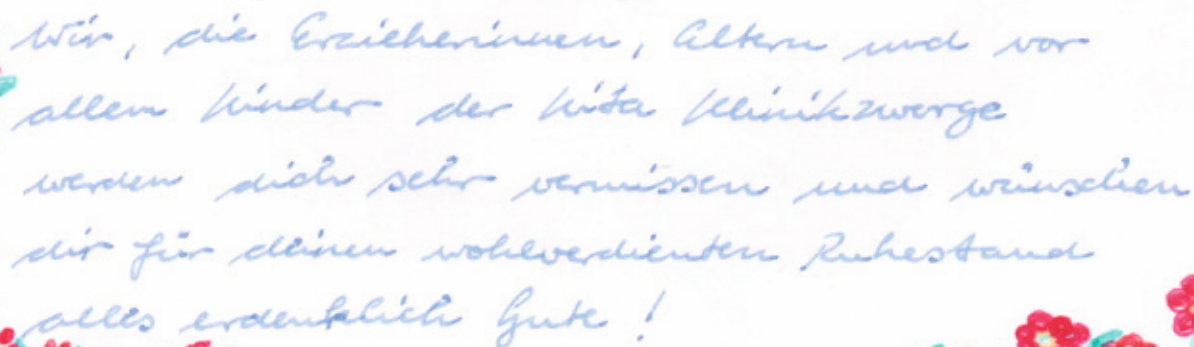 Wir, die Erzieherinnen, Eltern und vor
allem Kinder der Kita Klinikzwerge
werden dich sehr vermissen und wünschen
dir für deinen wohlverdienten Ruhestand
alles erdenklich Gute !